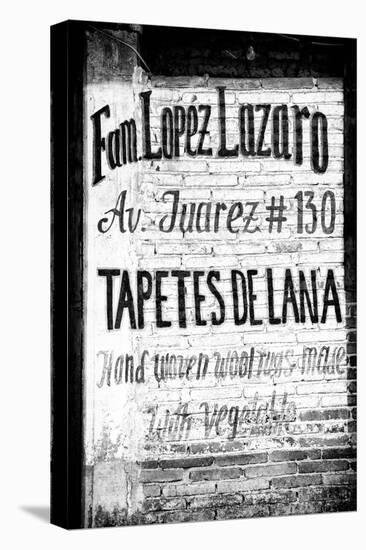 Fam. Lopéz Lazaro
Av. Juarez # 130
TAPETES DE LANA
Hand woven wool rugs made
With Vegetable